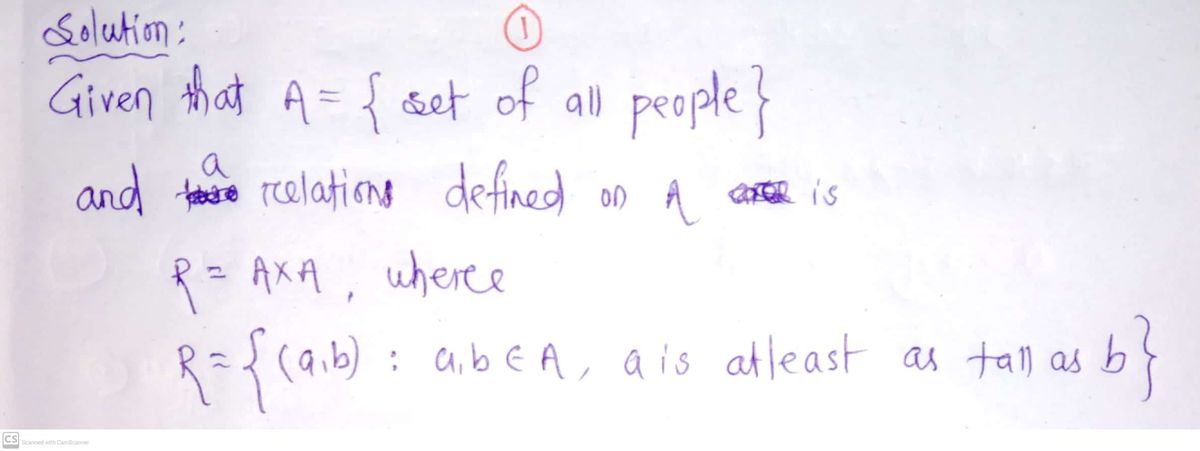 Solution:
①
Given that A = { set of all people}
a
and relations defined on A is
R = A×A, where
R = { (a,b) : a,b ∈ A, a is atleast as tall as b}
CS Scanned with CamScanner